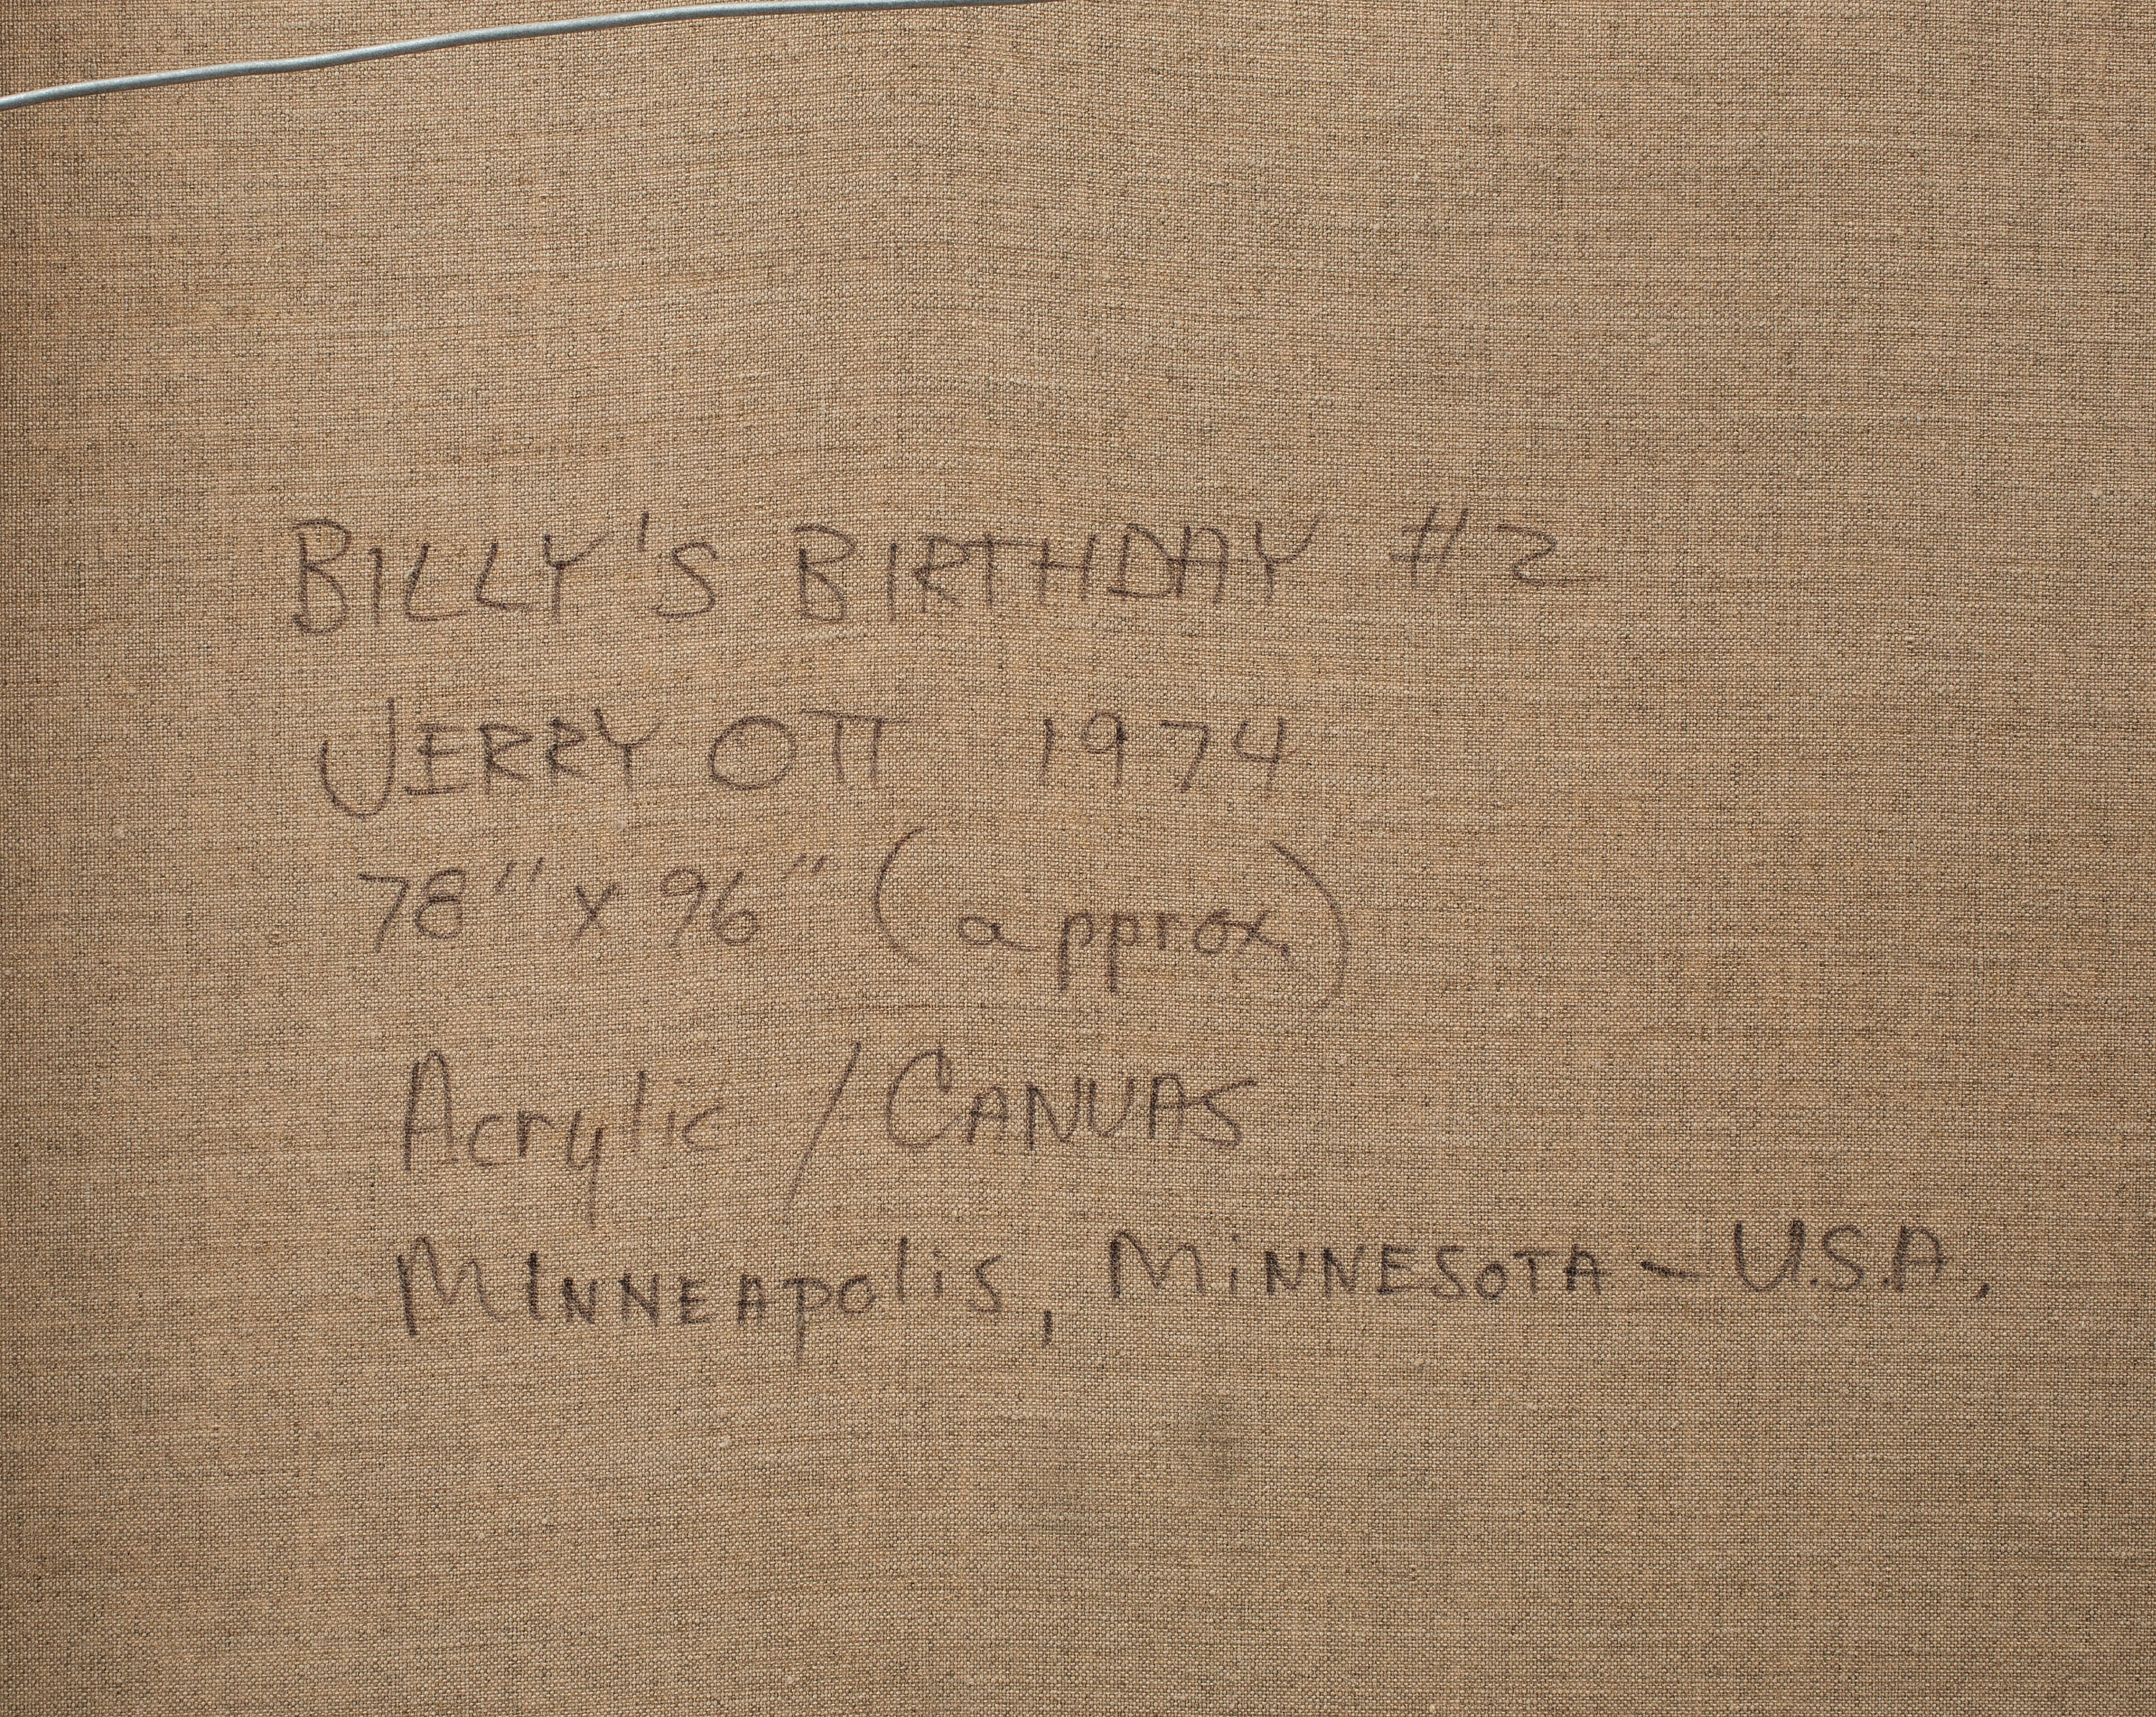 BILLY'S BIRTHDAY #2
JERRY OTT 1974
78" x 96" (approx.)
Acrylic / CANVAS
MINNEApolis, MiNNESOTA - U.S.A.